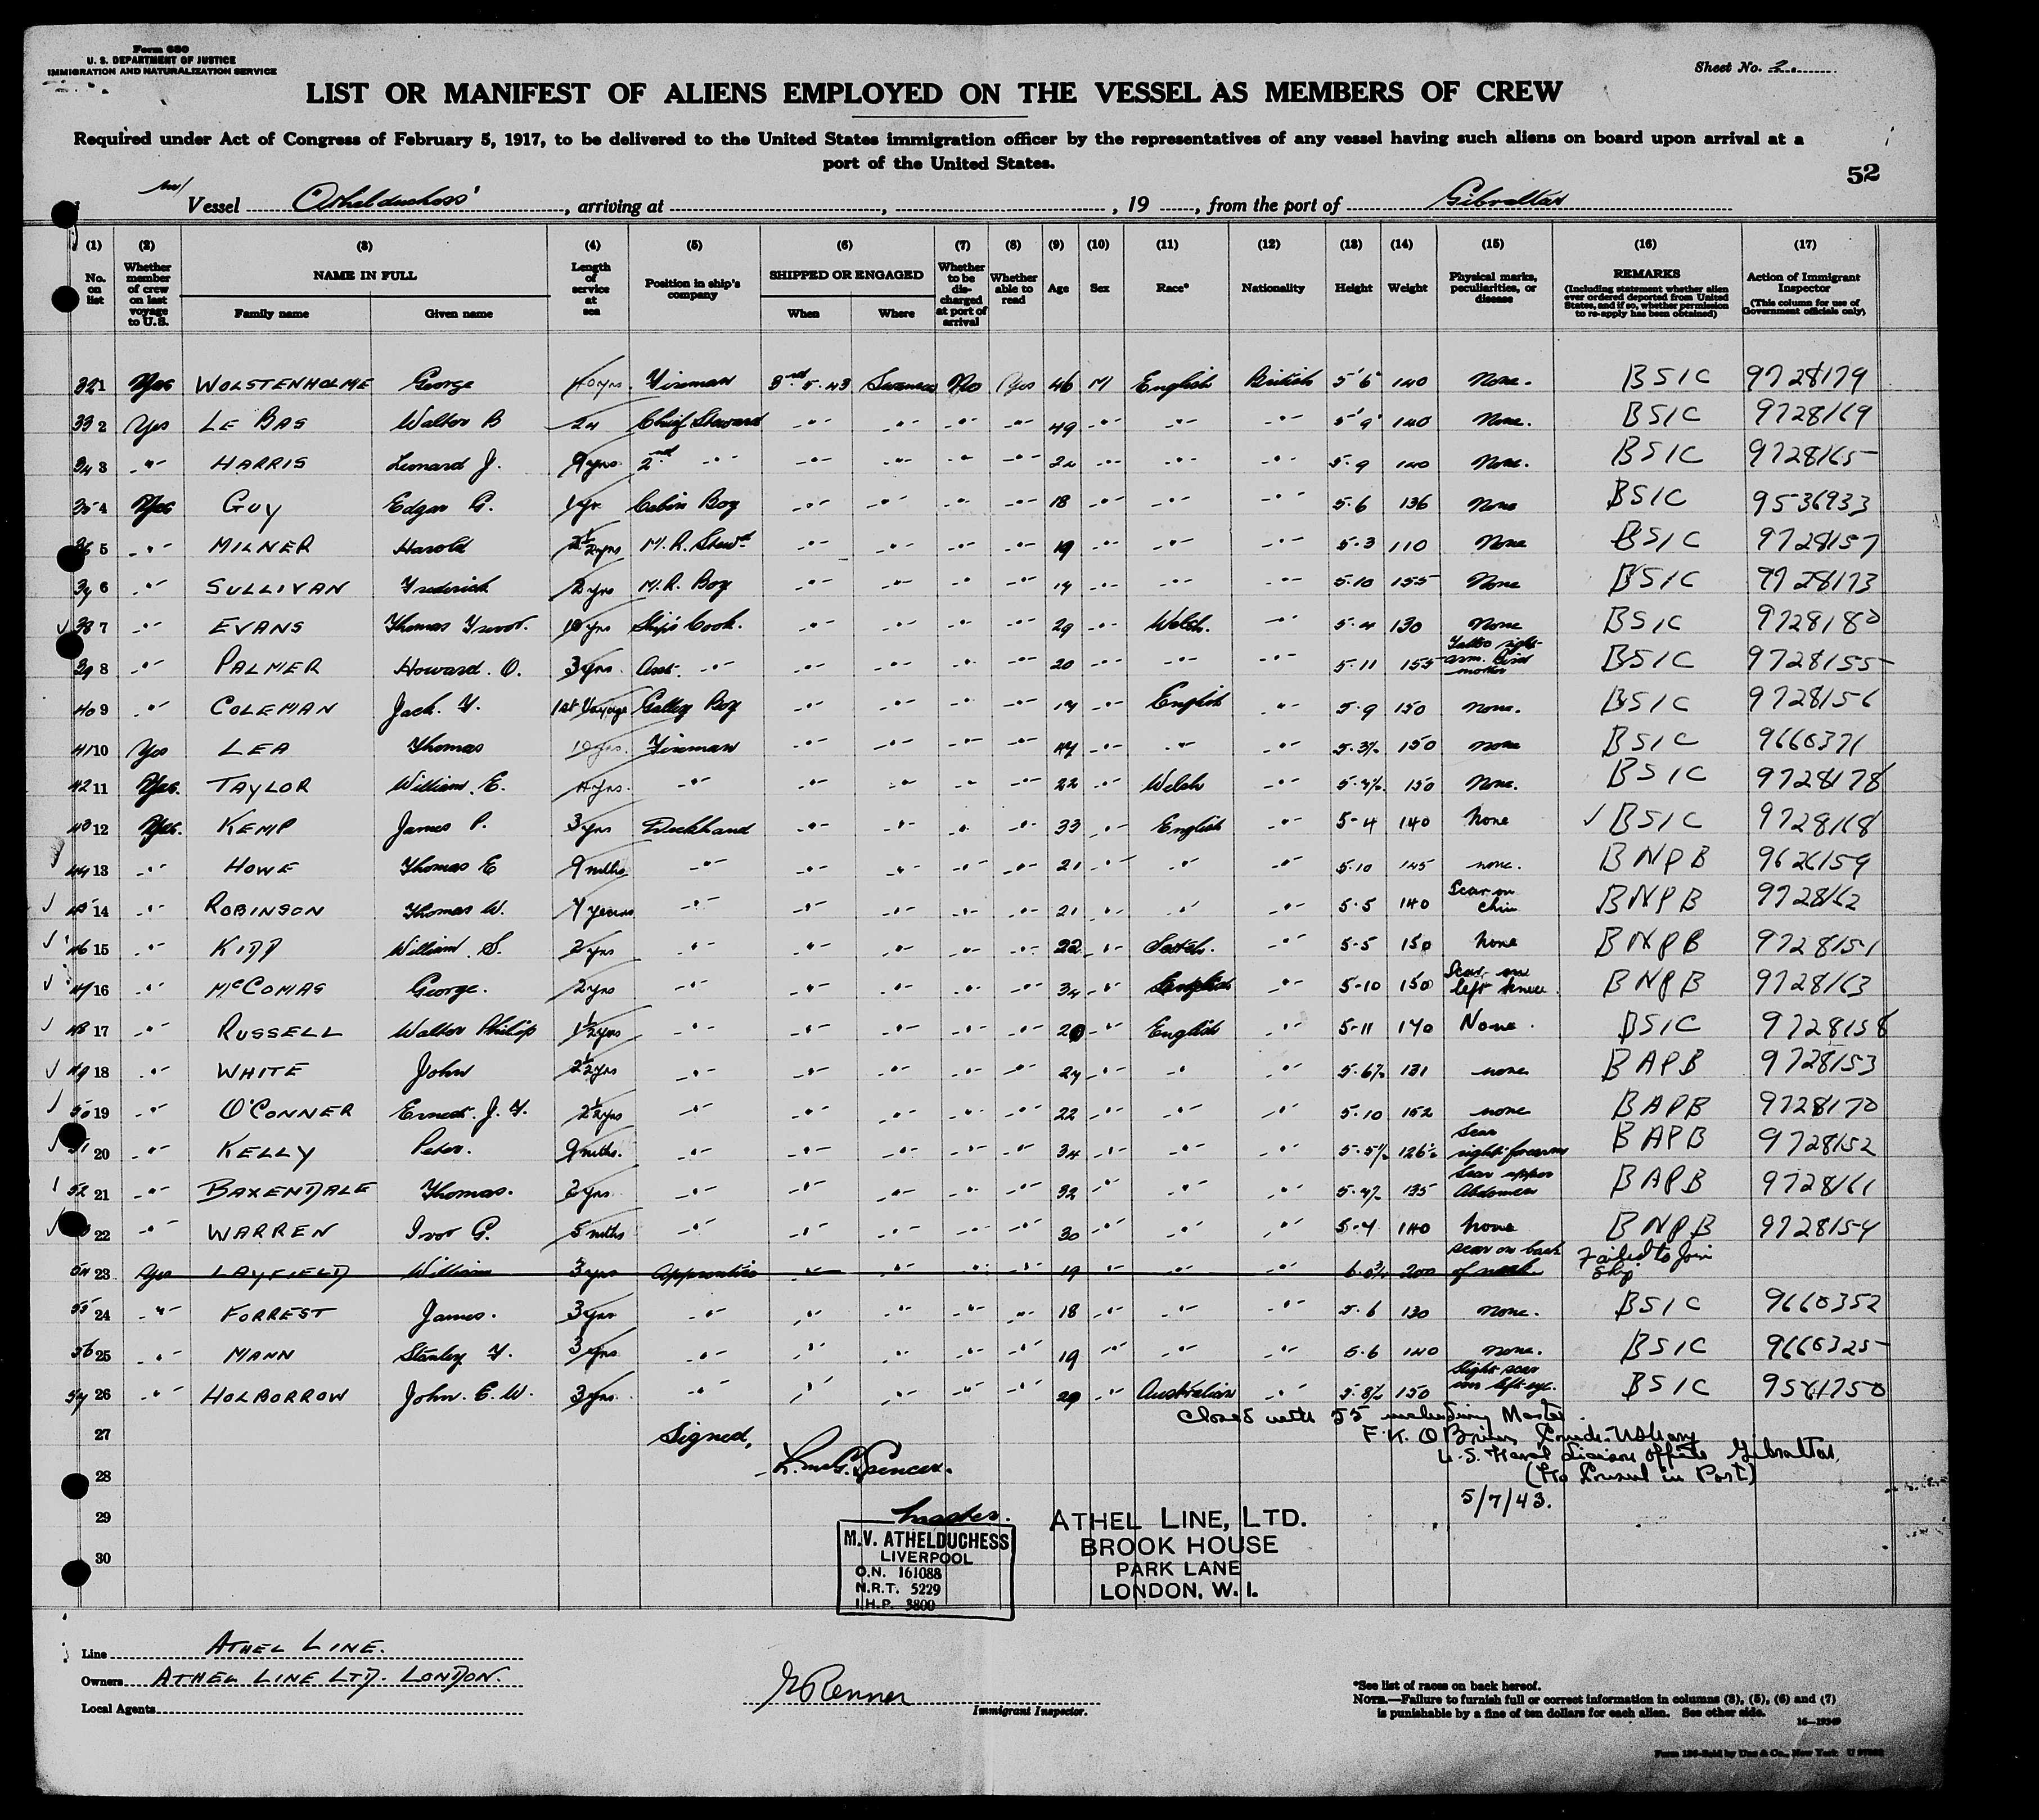 Form 680
U. S. DEPARTMENT OF JUSTICE
IMMIGRATION AND NATURALIZATION SERVICE
Sheet No. 2.
LIST OR MANIFEST OF ALIENS EMPLOYED ON THE VESSEL AS MEMBERS OF CREW
Required under Act of Congress of February 5, 1917, to be delivered to the United States immigration officer by the representatives of any vessel having such aliens on board upon arrival at a
port of the United States.
52
Vessel "Athelduchess", arriving at , , 19 , from the port of Gibraltar
(1) (2) (3) (4) (5) (6) (7) (8) (9) (10) (11) (12) (13) (14) (15) (16) (17)
No. on list Whether member of crew on last voyage to U.S. NAME IN FULL Family name Given name Length of service at sea Position in ship's company SHIPPED OR ENGAGED When Where Whether to be discharged at port of arrival Whether able to read Age Sex Race* Nationality Height Weight Physical marks, peculiarities, or disease REMARKS (Including statement whether alien ever ordered deported from United States, and if so, whether permission to re-apply has been obtained) Action of Immigrant Inspector (This column for use of Government officials only)
32 1 Yes WOLSTENHOLME George 40 yrs. Fireman 3rd 5.43 Swansea No Yes 46 M English British 5'6" 140 None. BSIC 9728179
33 2 Yes LE BAS Walter B 24 Chief Steward -"- -"- -"- -"- 49 -"- -"- -"- 5'9" 140 None. BSIC 9728169
34 3 -"- HARRIS Leonard J. 9 yrs. 2nd -"- -"- -"- -"- -"- 24 -"- -"- -"- 5.9 140 None. BSIC 9728165
35 4 Yes GUY Edgar G. 1 yr. Cabin Boy -"- -"- -"- -"- 18 -"- -"- -"- 5.6 136 None BSIC 9536933
36 5 -"- MILNER Harold 2½ yrs M.R. Stewd -"- -"- -"- -"- 19 -"- -"- -"- 5.3 110 None BSIC 9728157
37 6 -"- SULLIVAN Frederick 2 yrs M.R. Boy -"- -"- -"- -"- 17 -"- -"- -"- 5.10 155 None BSIC 9728173
38 7 -"- EVANS Thomas Trevor. 10 yrs Ship's Cook. -"- -"- -"- -"- 29 -"- Welsh. -"- 5.4 130 None BSIC 9728180
39 8 -"- PALMER Howard. O. 3 yrs. Asst. -"- -"- -"- -"- -"- 20 -"- -"- -"- 5.11 155 Tattoo right arm. Bird mother BSIC 9728155
40 9 -"- COLEMAN Jack. F. 1st Voyage Galley Boy -"- -"- -"- -"- 17 -"- English -"- 5.9 150 None. BSIC 9728156
41 10 Yes LEA Thomas 10 yrs. Fireman -"- -"- -"- -"- 47 -"- -"- -"- 5.3½ 150 None BSIC 9660371
42 11 Yes. TAYLOR William. E. 4 yrs. -"- -"- -"- -"- -"- 22 -"- Welsh -"- 5.4½ 150 None. BSIC 9728178
43 12 Yes. KEMP James P. 3 yrs Deckhand -"- -"- -"- -"- 33 -"- English -"- 5-4 140 None BSIC 9728168
44 13 -"- HOWE Thomas E 9 mths -"- -"- -"- -"- -"- 21 -"- -"- -"- 5.10 145 none. BNPB 9626159
45 14 -"- ROBINSON Thomas W. 7 years -"- -"- -"- -"- -"- 21 -"- -"- -"- 5.5 140 Scar on chin BNPB 9728162
46 15 -"- KIDD William. S. 2 yrs -"- -"- -"- -"- -"- 22 -"- Scotch. -"- 5-5 150 None BNPB 9728151
47 16 -"- McCOMAS George. 2 yrs -"- -"- -"- -"- -"- 34 -"- English -"- 5-10 150 Scar on left knee. BNPB 9728163
48 17 -"- RUSSELL Walter Philip 1½ yrs -"- -"- -"- -"- -"- 20 -"- English -"- 5-11 170 None. BSIC 9728158
49 18 -"- WHITE John 2½ yrs -"- -"- -"- -"- -"- 24 -"- -"- -"- 5.6½ 131 none BAPB 9728153
50 19 -"- O'CONNER Ernest. J. F. 2½ yrs -"- -"- -"- -"- -"- 22 -"- -"- -"- 5.10 152 none BAPB 9728170
51 20 -"- KELLY Peter. 9 mths. -"- -"- -"- -"- -"- 34 -"- -"- -"- 5.5½ 126½ Scar right forearm BAPB 9728152
52 21 -"- BAXENDALE Thomas. 2 yrs. -"- -"- -"- -"- -"- 32 -"- -"- -"- 5.4½ 135 Scar upper Abdomen BAPB 9728161
22 -"- WARREN Ivor G. 5 mths -"- -"- -"- -"- -"- 30 -"- -"- -"- 5.7 140 None BNPB 9728154
54 23 Yes LAYFIELD William 3 yrs Apprentice -"- -"- -"- -"- 19 -"- -"- 6.0½ 200 scar on back of neck. Failed to Join Ship
55 24 -"- FORREST James. 3 yrs -"- -"- -"- -"- -"- 18 -"- -"- -"- 5.6 130 None. BSIC 9660352
56 25 -"- MANN Stanley F. 3 yrs. -"- -"- -"- -"- -"- 19 -"- -"- -"- 5.6 140 None. BSIC 9660325
57 26 -"- HOLBORROW John. E. W. 3 yrs. -"- -"- -"- -"- -"- 20 -"- Australian -"- 5.8½ 150 Slight scar over left eye. BSIC 9581750
Closed with 55 including Master.
27 Signed, F. K. O'Brien
U.S. Naval Liaison Office Gibraltar.
28 L. McG. Spencer. (No Consul in Port)
5/7/43.
29 Master.
30
M.V. ATHELDUCHESS
LIVERPOOL
O.N. 161088
N.R.T. 5229
I.H.P. 3800
ATHEL LINE, LTD.
BROOK HOUSE
PARK LANE
LONDON, W.1.
Line ATHEL LINE.
Owners ATHEL LINE LTD. LONDON.
Local Agents
Immigrant Inspector.
*See list of races on back hereof.
NOTE.—Failure to furnish full or correct information in columns (3), (5), (6) and (7)
is punishable by a fine of ten dollars for each alien. See other side.